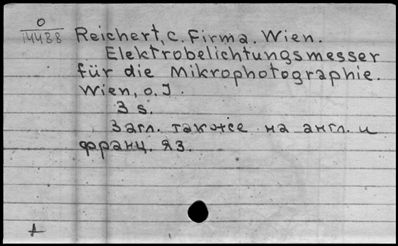 O
14488
Reichert, C. Firma. Wien.
Elektrobelichtungsmesser
für die Mikrophotographie.
Wien, o. J.
3 s.
Загл. также на англ. и
франц. яз.